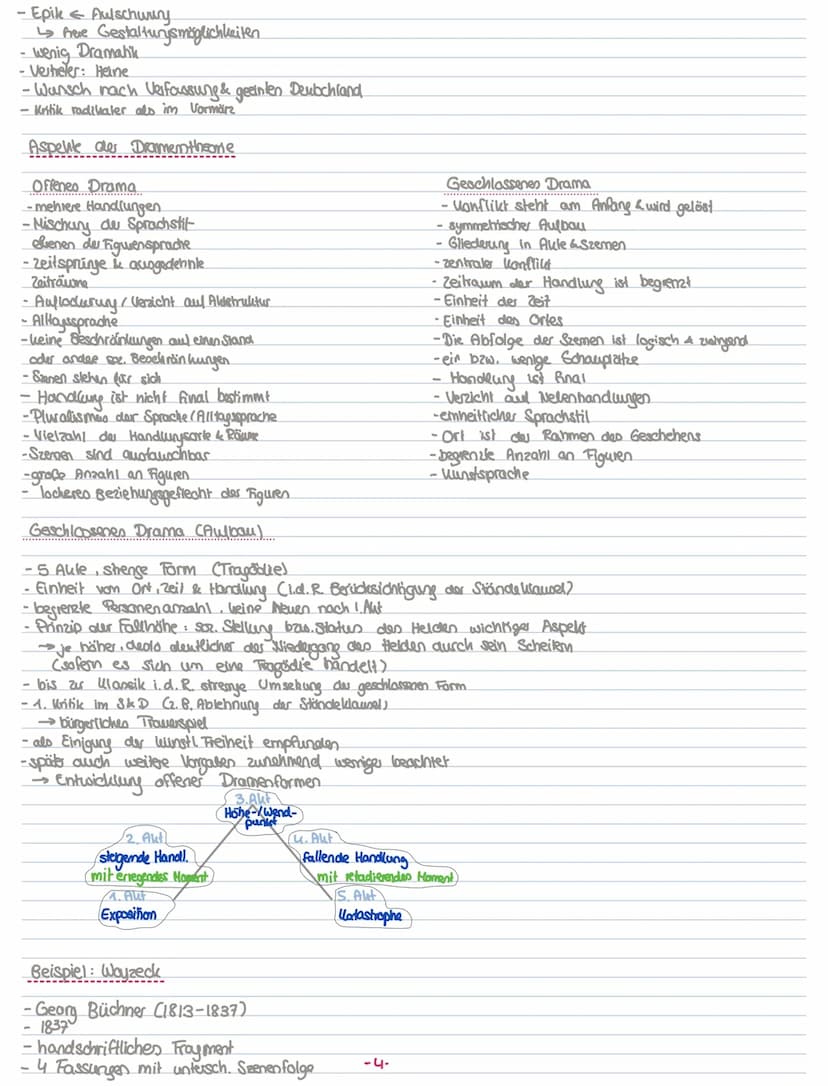 - Epik ← Aufschwung
↳ freie Gestaltungsmöglichkeiten
- wenig Dramatik
- Vertreter: Heine
- Wunsch nach Verfassung & geeinten Deutschland
- Kritik radikaler als im Vormärz
Aspekte der Dramentheorie
Offenes Drama
- mehrere Handlungen
- Mischung der Sprachstil-
ebenen der Figurensprache
- Zeitsprünge & ausgedehnte
Zeiträume
- Auflockerung / Verzicht auf Aktstruktur
- Alltagssprache
- keine Beschränkungen auf einen Stand
oder andere soz. Beschränkungen
- Szenen stehen für sich
- Handlung ist nicht final bestimmt
- Pluralismus der Sprache/Alltagssprache
- Vielzahl der Handlungsorte & Räume
- Szenen sind austauschbar
- große Anzahl an Figuren
- lockeres Beziehungsgeflecht der Figuren
Geschlossenes Drama
- Konflikt steht am Anfang & wird gelöst
- symmetrischer Aufbau
- Gliederung in Akte & Szenen
- zentraler Konflikt
- Zeitraum der Handlung ist begrenzt
- Einheit der Zeit
- Einheit des Ortes
- Die Abfolge der Szenen ist logisch & zwingend
- ein bzw. wenige Schauplätze
- Handlung ist final
- Verzicht auf Nebenhandlungen
- einheitlicher Sprachstil
- Ort ist der Rahmen des Geschehens
- begrenzte Anzahl an Figuren
- Kunstsprache
Geschlossenes Drama (Aufbau)
- 5 Akte, strenge Form (Tragödie)
- Einheit von Ort, Zeit & Handlung (i.d.R. Berücksichtigung der Ständeklausel)
- begrenzte Personenanzahl, keine Neuen nach 1. Akt
- Prinzip der Fallhöhe: soz. Stellung bzw. Status des Helden wichtiger Aspekt
→ je höher, desto deutlicher der Niedergang des Helden durch sein Scheitern
(sofern es sich um eine Tragödie handelt)
- bis zur Klassik i.d.R. strenge Umsetzung der geschlossenen Form
- 1. Kritik im S&D (z.B. Ablehnung der Ständeklausel)
→ bürgerliches Trauerspiel
- als Einigung der künstl. Freiheit empfunden
- später auch weitere Vorgaben zunehmend weniger beachtet
→ Entwicklung offener Dramenformen
3. Akt
Höhe-/Wend-
punkt
2. Akt
steigende Handl.
mit erregendes Moment
4. Akt
fallende Handlung
mit retadierenden Moment
1. Akt
Exposition
5. Akt
Katastrophe
Beispiel: Woyzeck
- Georg Büchner (1813-1837)
- 1837
- handschriftliches Fragment
- 4 Fassungen mit untersch. Szenenfolge
-4-